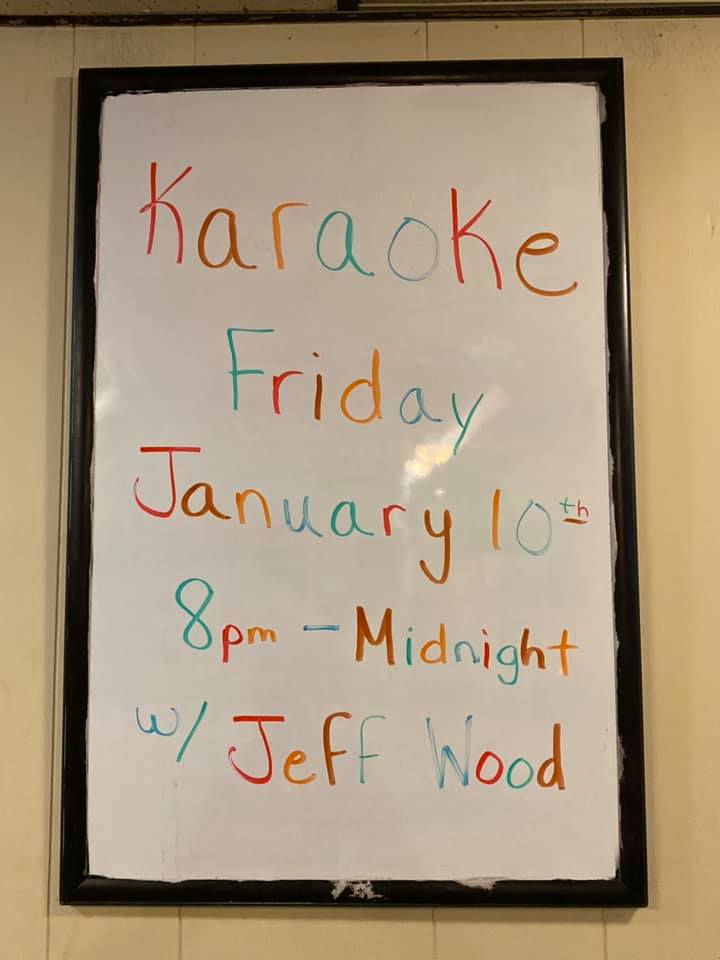 Karaoke
Friday
January 10th
8pm - Midnight
w/ Jeff Wood